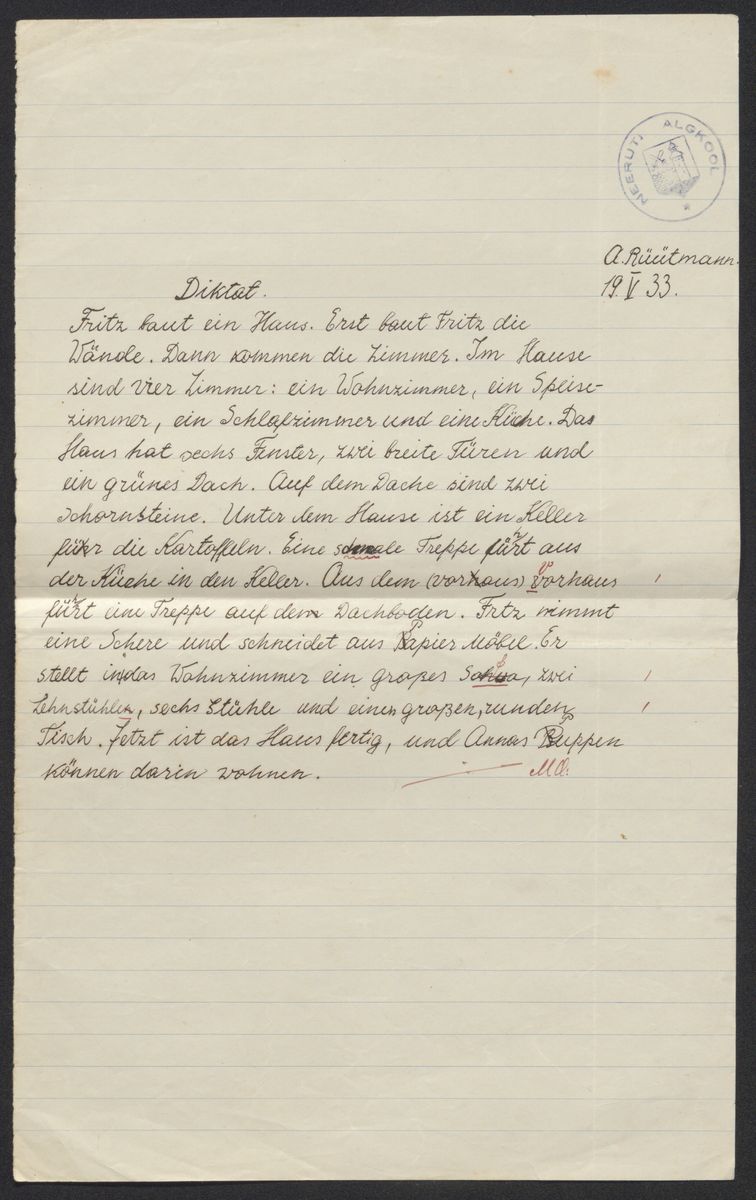 NEERUTI ALGKOOL
A. Rüütmann.
19. V 33.
Diktat.
Fritz baut ein Haus. Erst baut Fritz die
Wände. Dann kommen die Zimmer. Im Hause
sind vier Zimmer: ein Wohnzimmer, ein Speise-
zimmer, ein Schlafzimmer und eine Küche. Das
Haus hat sechs Fenster, zwei breite Türen und
ein grünes Dach. Auf dem Dache sind zwei
Schornsteine. Unter dem Hause ist ein Keller
für die Kartoffeln. Eine schmale Treppe fürt aus
der Küche in den Keller. Aus dem (vorhaus) Vorhaus
fürt eine Treppe auf dem Dachboden. Fritz nimmt
eine Schere und schneidet aus Papier Möbel. Er
stellt in das Wohnzimmer ein großes zwei
Lehnstühlen, sechs Stühle und einen großen, runden
Tisch. Jetzt ist das Haus fertig, und Annas Puppen
können darin wohnen.